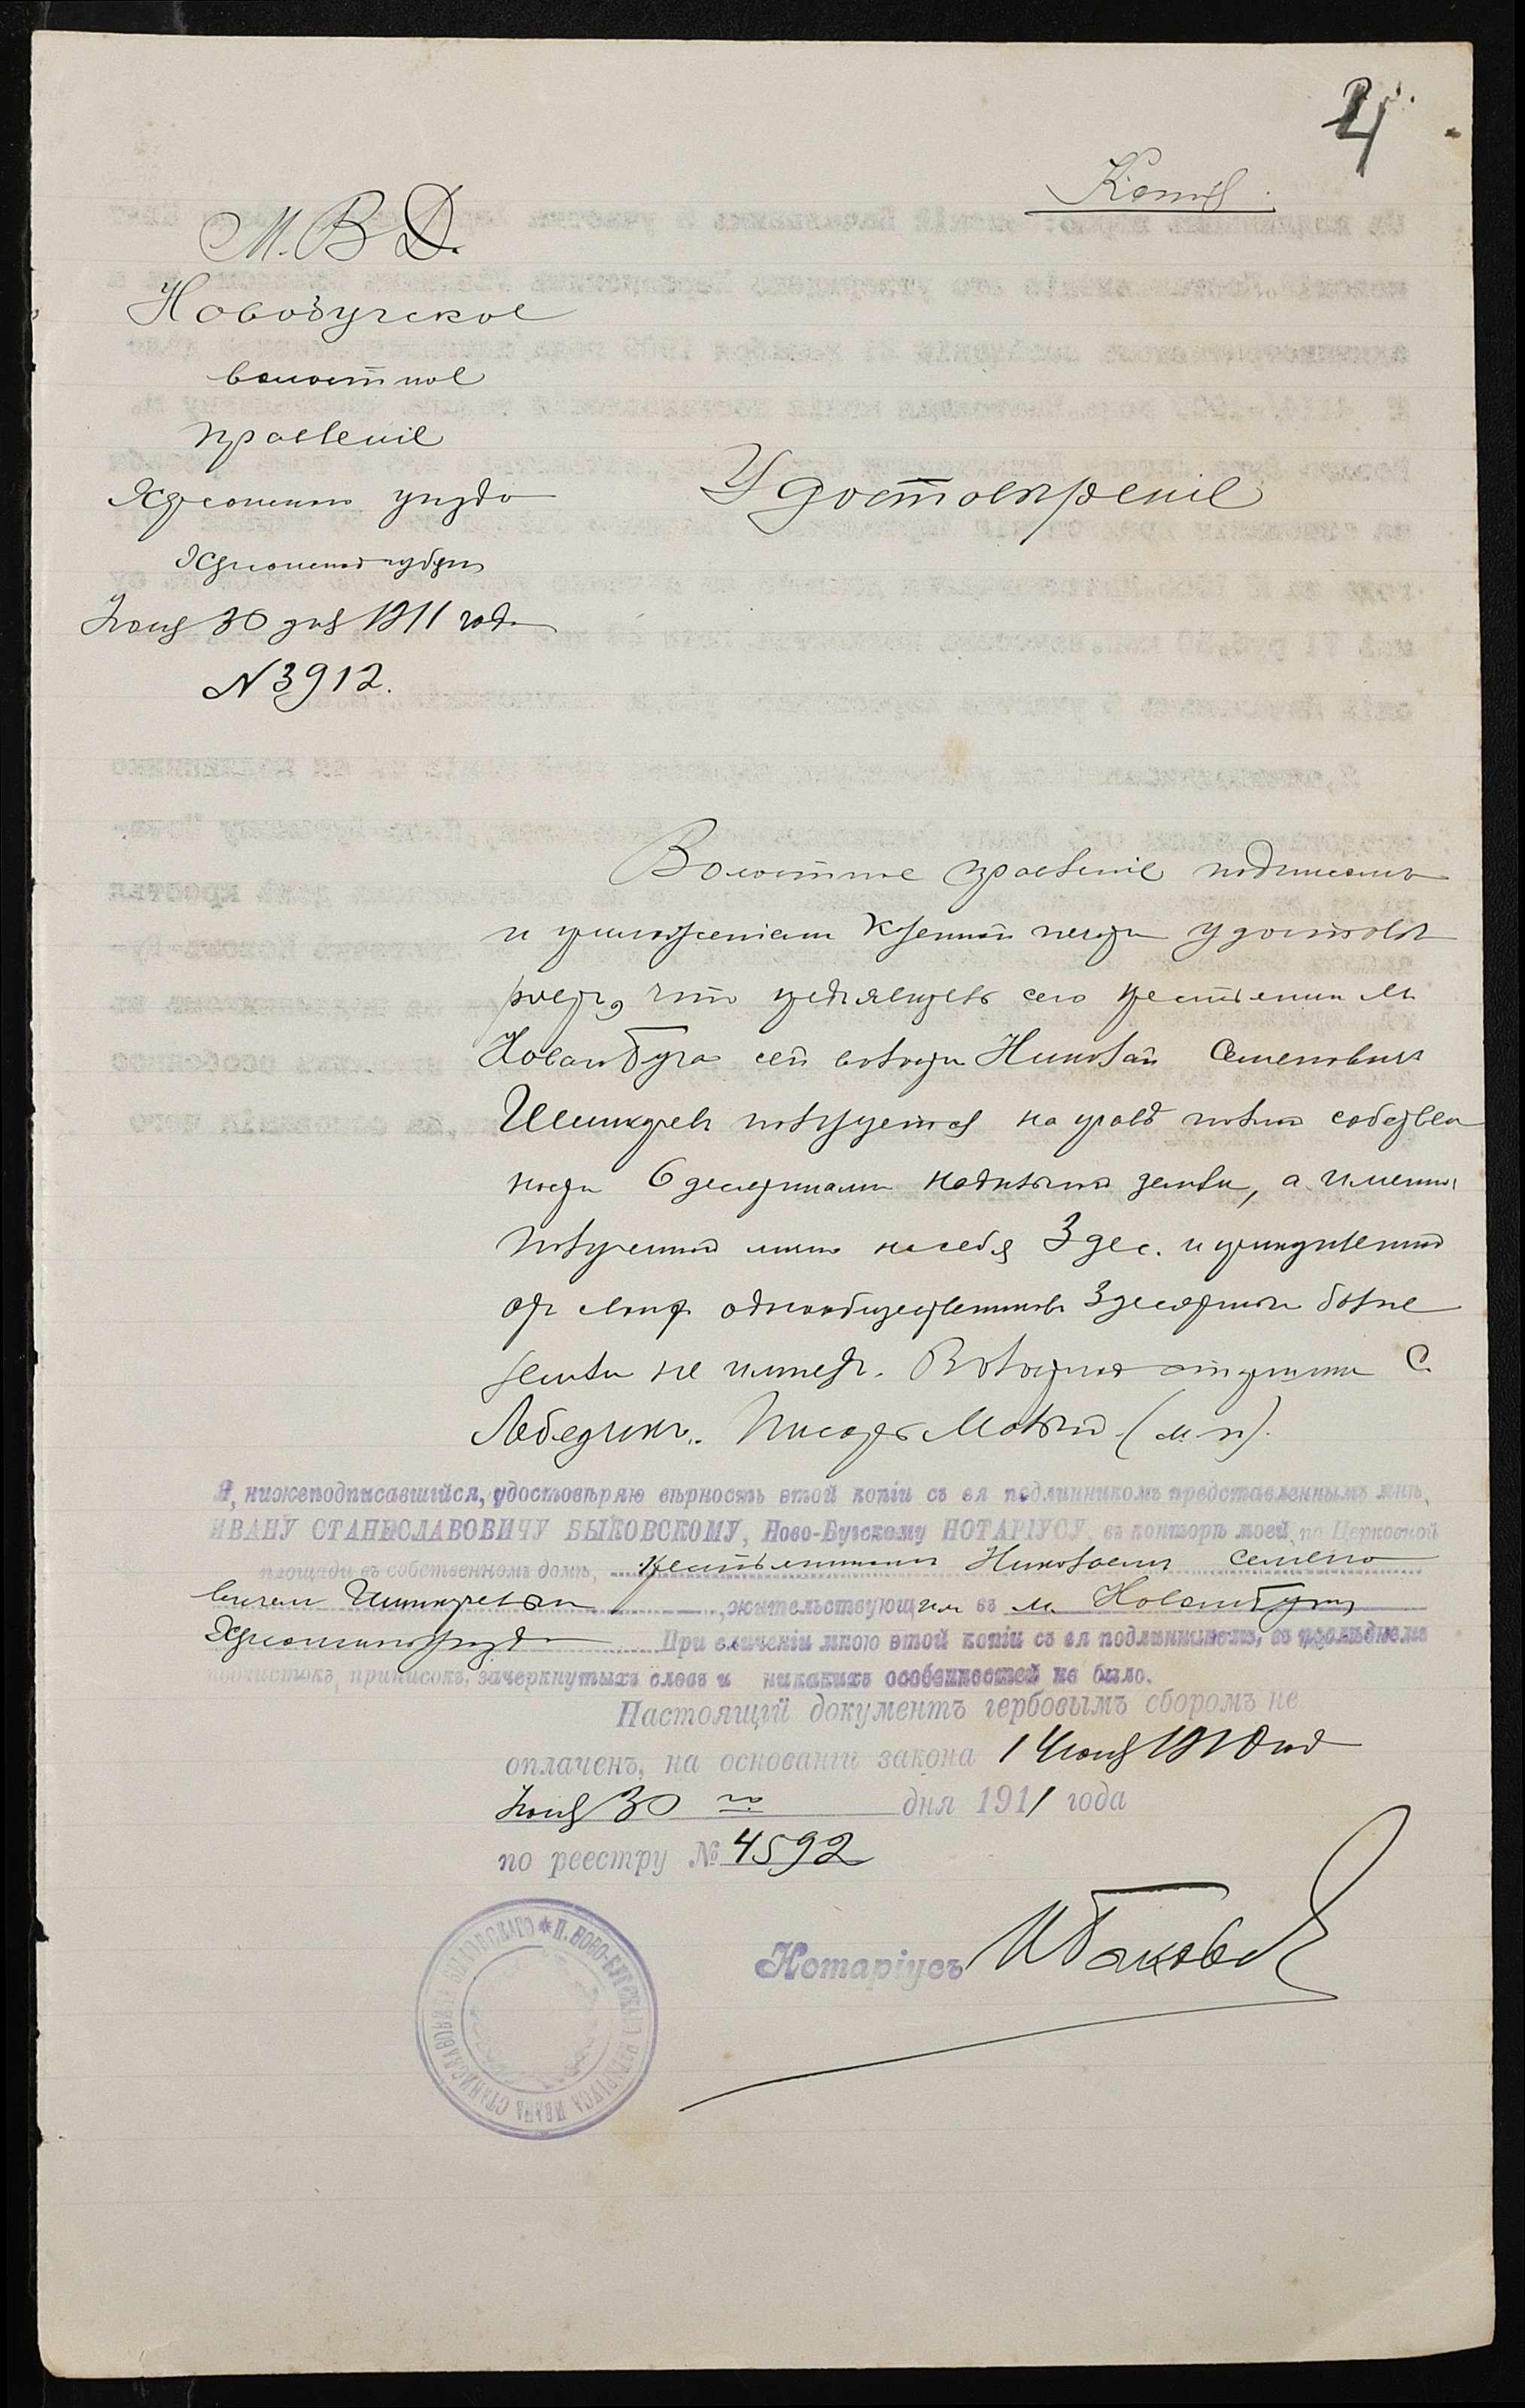 4
Копія
М. В. Д.
Новобугское
волостное
правленіе
Херсонскаго уѣзда
Херсонской губерн
Іюня 30 дня 1911 года
N 3912.
Удостовѣреніе
Волостное правленіе подписомъ
и приложеніемъ казенной печати удостовѣ
ряетъ, что предъявитель сего крестьянинъ м.
Новаго Буга сей волости Николай Семеновичъ
пользуется на правѣ полной собствен
ности 6 десятинами надѣльной земли, а именно
полученной лично на себя 3 дес. и прикупленной
отъ своихъ однообщественниковъ 3 десятины болѣе
земли не имѣетъ. Волостной старшина С.
Лебедкинъ. Писарь (м. п).
Я, нижеподписавшійся, удостовѣряю вѣрность этой копіи съ ея подлинникомъ представленнымъ мнѣ,
ИВАНУ СТАНИСЛАВОВИЧУ БЫКОВСКОМУ, Ново-Бугскому НОТАРІУСУ, въ конторѣ моей, по Церковной
площади въ собственномъ домѣ, крестьяниномъ Николаемъ Семено
вичемъ , жительствующимъ въ м. Новомъ Бугѣ
Херсонскаго уѣзда При сличеніи мною этой копіи съ ея подлинникомъ, въ послѣднемъ
подчистокъ, приписокъ, зачеркнутыхъ словъ и никакихъ особенностей не было.
Настоящій документъ гербовымъ сборомъ не
оплаченъ, на основаніи закона 14 юня 1910 год
Іюня 30 го дня 1911 года
по реестру № 4592
Нотаріусъ И Быковск
* П. НОВО-БУГСКАГО НОТАРІУСА ИВАНА СТАНИСЛАВОВИЧА БЫКОВСКАГО